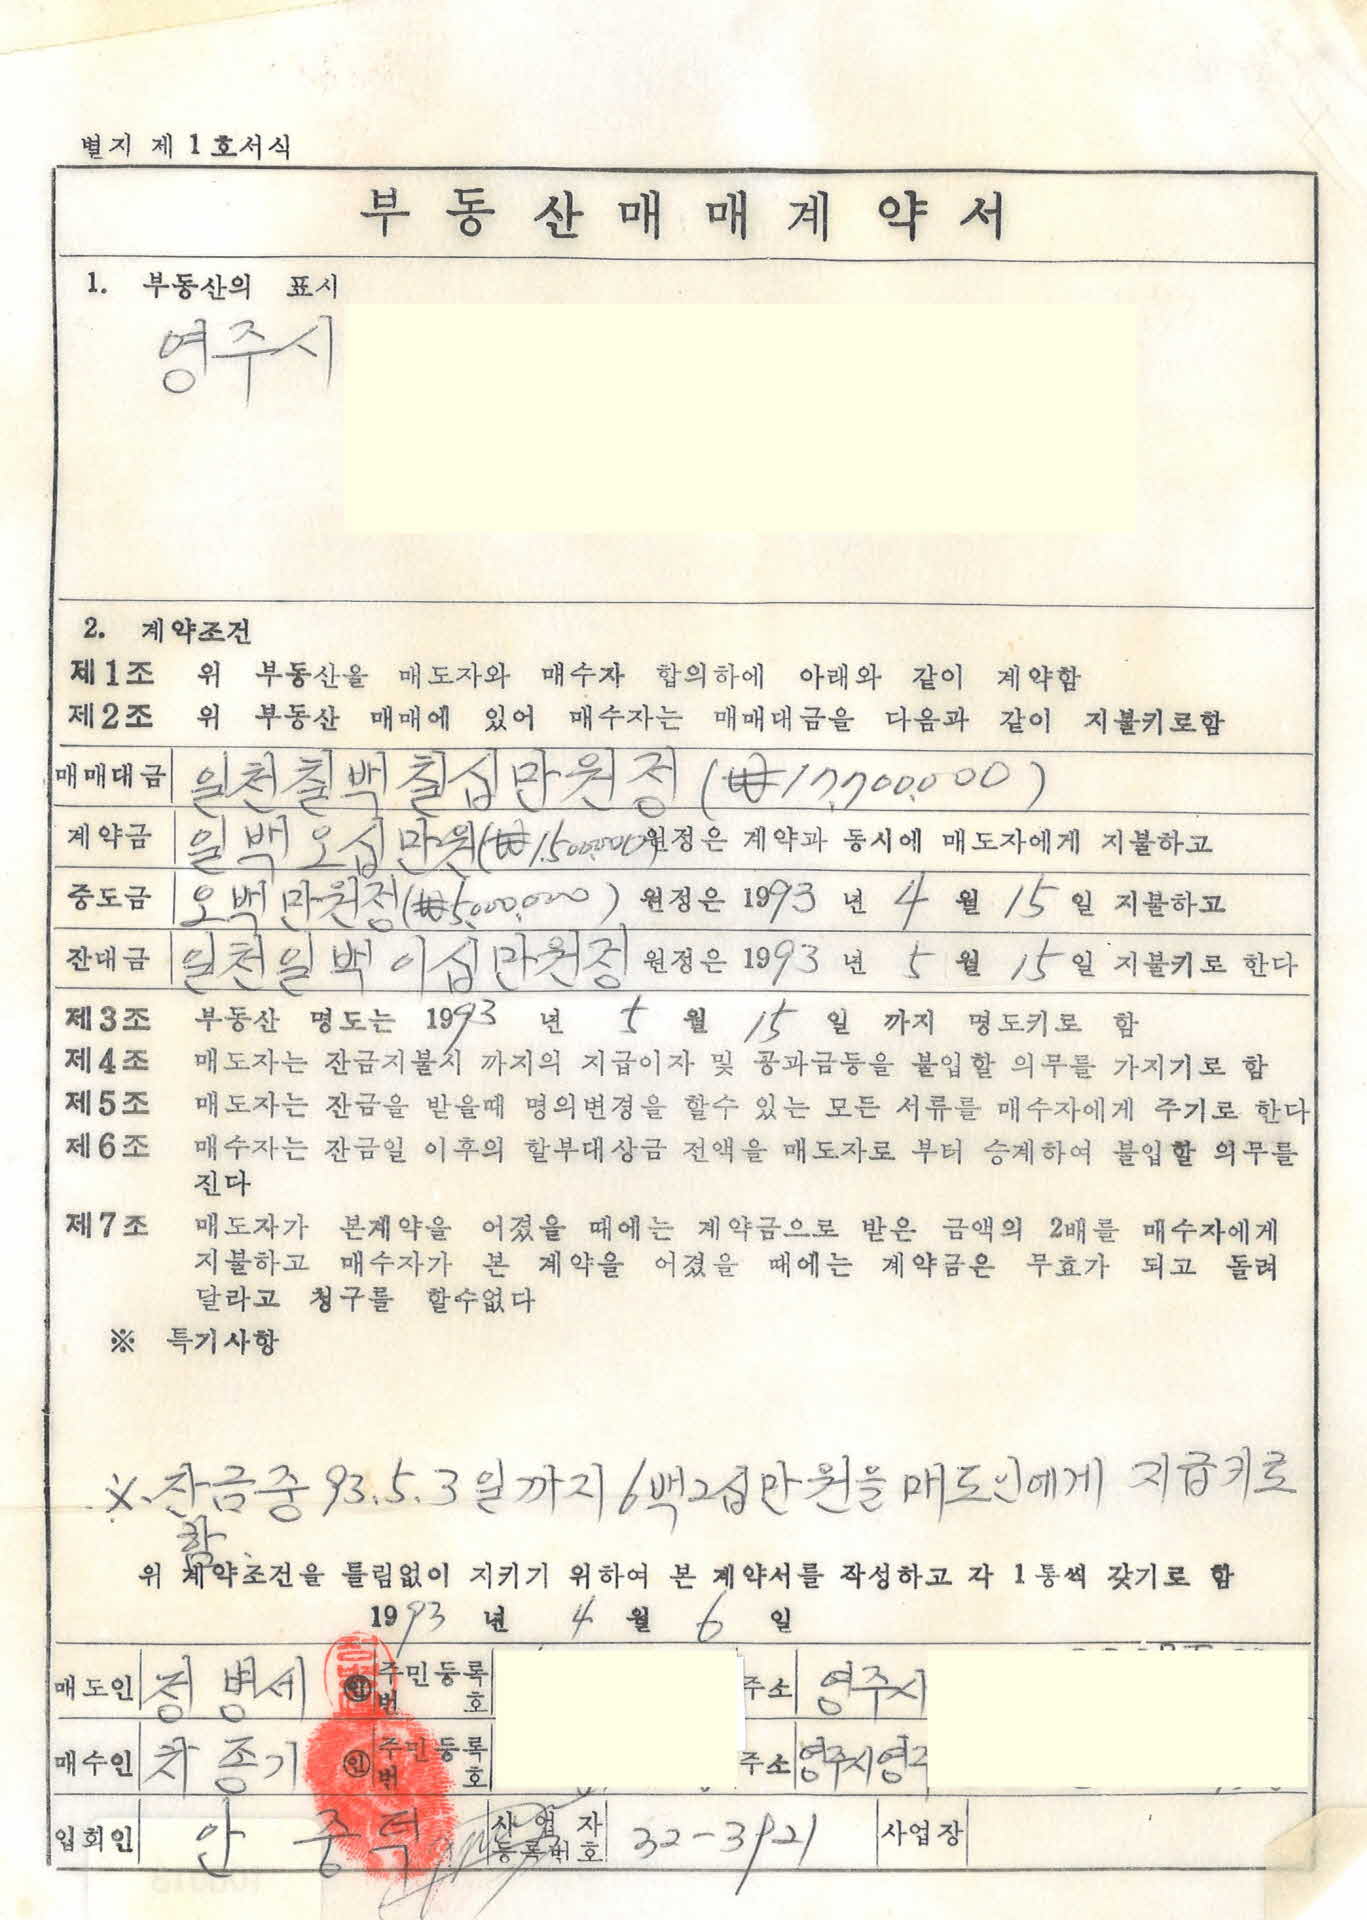 별지 제 1 호서식
부동산매매계약서
1. 부동산의 표시
영주시
2. 계약조건
제1조 위 부동산을 매도자와 매수자 합의하에 아래와 같이 계약함
제2조 위 부동산 매매에 있어 매수자는 매매대금을 다음과 같이 지불키로함
매매대금 일천칠백칠십만원정 (₩17,700,000)
계약금 일백오십만원(₩1,500,000)원정은 계약과 동시에 매도자에게 지불하고
중도금 오백만원정(₩5,000,000) 원정은 1993 년 4 월 15 일 지불하고
잔대금 일천일백이십만원정 원정은 1993 년 5 월 15 일 지불키로 한다
제3조 부동산 명도는 1993 년 5 월 15 일 까지 명도키로 함
제4조 매도자는 잔금지불시 까지의 지급이자 및 공과금등을 불입할 의무를 가지기로 함
제5조 매도자는 잔금을 받을때 명의변경을 할수 있는 모든 서류를 매수자에게 주기로 한다
제6조 매수자는 잔금일 이후의 할부대상금 전액을 매도자로 부터 승계하여 불입할 의무를
진다
제7조 매도자가 본계약을 어겼을 때에는 계약금으로 받은 금액의 2배를 매수자에게
지불하고 매수자가 본 계약을 어겼을 때에는 계약금은 무효가 되고 돌려
달라고 청구를 할수없다
※ 특기사항
※. 잔금중 93.5.3일까지 6백2십만원을 매도인에게 지급키로
함.
위 계약조건을 틀림없이 지키기 위하여 본 계약서를 작성하고 각 1통씩 갖기로 함
1993 년 4 월 6 일
매도인 정병세 인 주민등록번호 주소 영주시
매수인 차종기 인 주민등록번호 주소 영주시영주
입회인 안중덕 사업자등록번호 32-3921 사업장